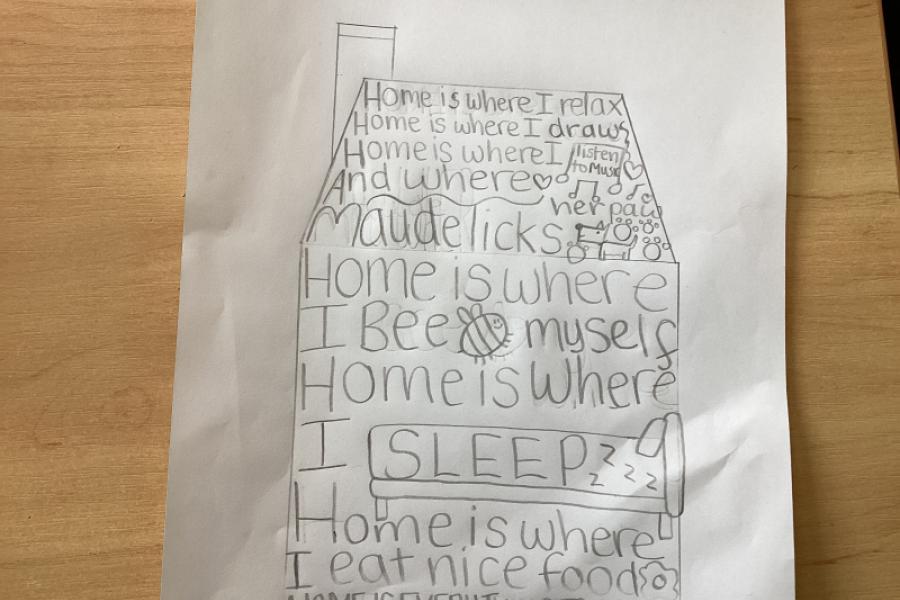 Home is where I relax
Home is where I draws
Home is where I listen to Music
And where
Maude licks her paw
Home is where
I Bee myself
Home is where
I SLEEP zzzz
Home is where
I eat nice food
HOME IS